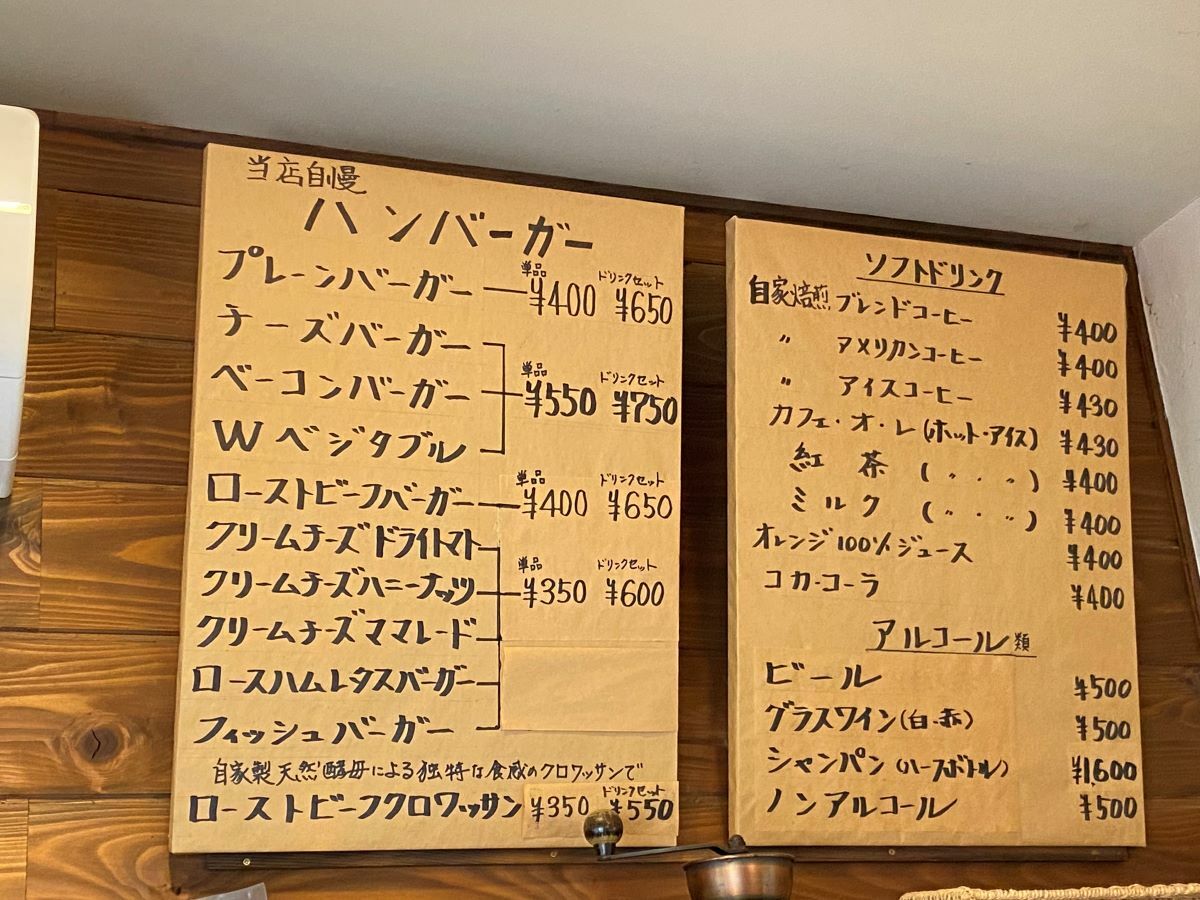 当店自慢
ハンバーガー
プレーンバーガー 単品 ¥400 ドリンクセット ¥650
チーズバーガー
ベーコンバーガー 単品 ¥550 ドリンクセット ¥750
Wベジタブル
ローストビーフバーガー 単品 ¥400 ドリンクセット ¥650
クリームチーズドライトマト
クリームチーズハニーナッツ 単品 ¥350 ドリンクセット ¥600
クリームチーズママレード
ロースハムレタスバーガー
フィッシュバーガー
自家製天然酵母による独特な食感のクロワッサンで
ローストビーフクロワッサン ¥350 ドリンクセット ¥550
ソフトドリンク
自家焙煎 ブレンドコーヒー ¥400
〃 アメリカンコーヒー ¥400
〃 アイスコーヒー ¥430
カフェ・オ・レ(ホット・アイス) ¥430
紅茶 (〃・〃) ¥400
ミルク (〃・〃) ¥400
オレンジ100%ジュース ¥400
コカ・コーラ ¥400
アルコール類
ビール ¥500
グラスワイン(白・赤) ¥500
シャンパン(ハーフボトル) ¥1600
ノンアルコール ¥500